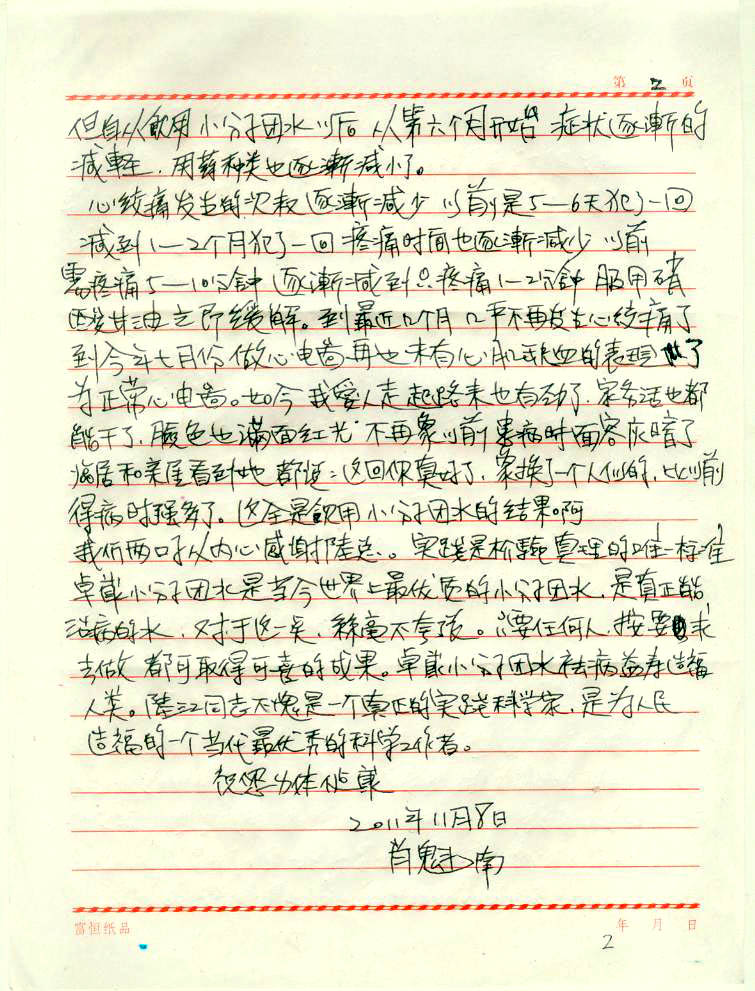 第 2 页
但自从飲用小分子团水以后。从第六个月开始 症状逐漸的
減輕,用葯种类也逐漸減小了。
心绞痛发生的次数逐漸減少 以前是5—6天犯了一回
減到1—2个月犯了一回 疼痛时间也逐漸減少 以前
需疼痛5—10分钟 逐漸減到只疼痛1—2分钟 服用硝
甘油立即缓解。到最近几个月 几乎不再发生心绞痛了
到今年七月份做心电啚再也未有心肌缺血的表現
为正常心电啚。如今我愛人走起路来也有劲了,家务活也都
能干了,臉色也滿面红光 不再象以前患病时面容灰暗了
临居和亲属看到她都说:这回你真好了,象换了一个人似的,比以前
得病时强多了。这全是飲用小分子团水的结果啊
我们两口子从内心感谢 实践是检驗真理的唯一标准
卓康小分子团水是当今世界上最优质的小分子团水,是真正能
治病的水,对于这一点,絲毫不夸張。只要任何人,按要求
去做 都可取得可喜的成果。卓康小分子团水祛病益寿造福
人类。陸江同志不愧是一个真正的实践科学家,是为人民
造福的一个当代最优秀的科学工作者。
祝您身体健康
2011年11月8日
肖魁南
富恒纸品 年 月 日
2